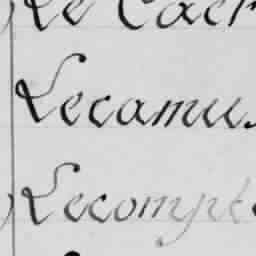 Le Cacr
Lecamus
Lecompte